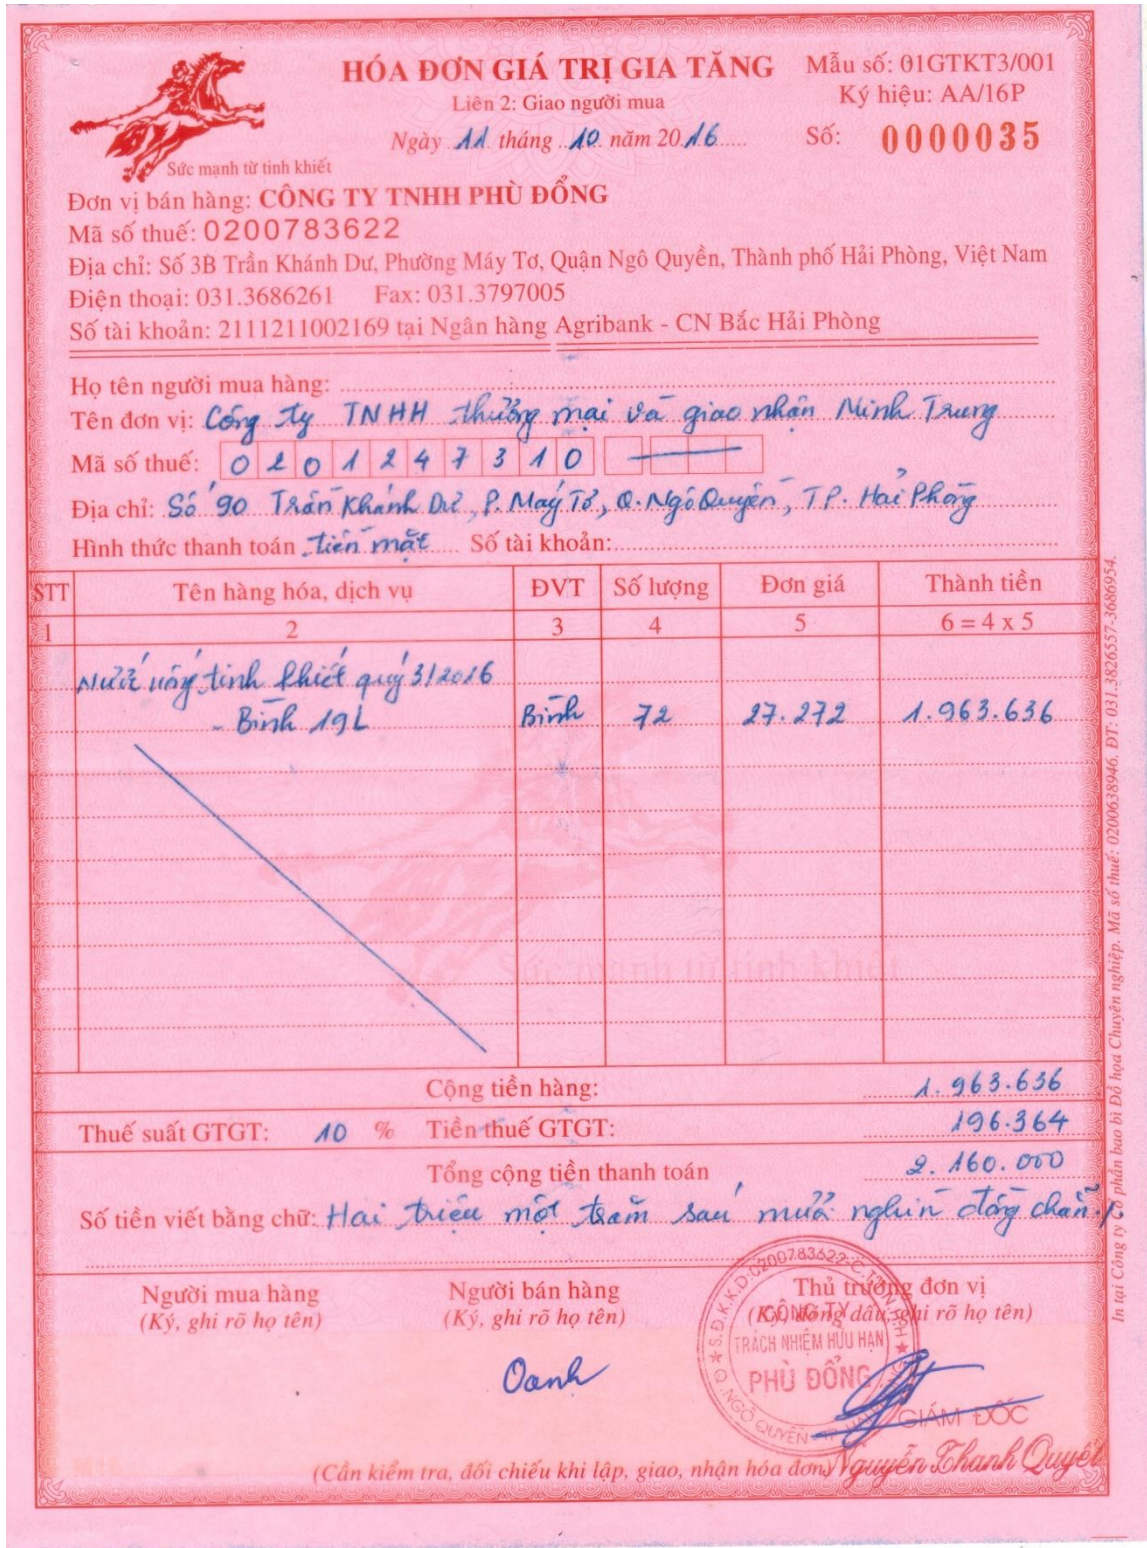 HÓA ĐƠN GIÁ TRỊ GIA TĂNG
Liên 2: Giao người mua
Ngày 11 tháng 10 năm 2016
Mẫu số: 01GTKT3/001
Ký hiệu: AA/16P
Số: 0000035
Sức mạnh từ tinh khiết
Đơn vị bán hàng: CÔNG TY TNHH PHÙ ĐỔNG
Mã số thuế: 0200783622
Địa chỉ: Số 3B Trần Khánh Dư, Phường Máy Tơ, Quận Ngô Quyền, Thành phố Hải Phòng, Việt Nam
Điện thoại: 031.3686261 Fax: 031.3797005
Số tài khoản: 2111211002169 tại Ngân hàng Agribank - CN Bắc Hải Phòng
Họ tên người mua hàng:
Tên đơn vị: Công ty TNHH thương mại và giao nhận Minh Trung
Mã số thuế: 0201247310
Địa chỉ: Số 90 Trần Khánh Dư, P. Máy Tơ, Q. Ngô Quyền, TP. Hải Phòng
Hình thức thanh toán tiền mặt Số tài khoản:
STT Tên hàng hóa, dịch vụ ĐVT Số lượng Đơn giá Thành tiền
1 2 3 4 5 6 = 4 x 5
Nước uống tinh khiết quý 3/2016
- Bình 19L Bình 72 27.272 1.963.636
Sức mạnh từ tinh khiết
Cộng tiền hàng: 1.963.636
Thuế suất GTGT: 10 % Tiền thuế GTGT: 196.364
Tổng cộng tiền thanh toán 2.160.000
Số tiền viết bằng chữ: Hai triệu một trăm sáu mươi nghìn đồng chẵn./.
Người mua hàng Người bán hàng Thủ trưởng đơn vị
(Ký, ghi rõ họ tên) (Ký, ghi rõ họ tên) (Ký, đóng dấu, ghi rõ họ tên)
Oanh
S.Đ.K.K.D:0200783622-C.T.T.N.H.H
CÔNG TY
TRÁCH NHIỆM HỮU HẠN
PHÙ ĐỔNG
Q. NGÔ QUYỀN - TP. HẢI PHÒNG
GIÁM ĐỐC
Nguyễn Thanh Quyết
(Cần kiểm tra, đối chiếu khi lập, giao, nhận hóa đơn)
In tại Công ty Cổ phần bao bì Đồ họa Chuyên nghiệp. Mã số thuế: 0200638946. ĐT: 031.3826557-3686954.